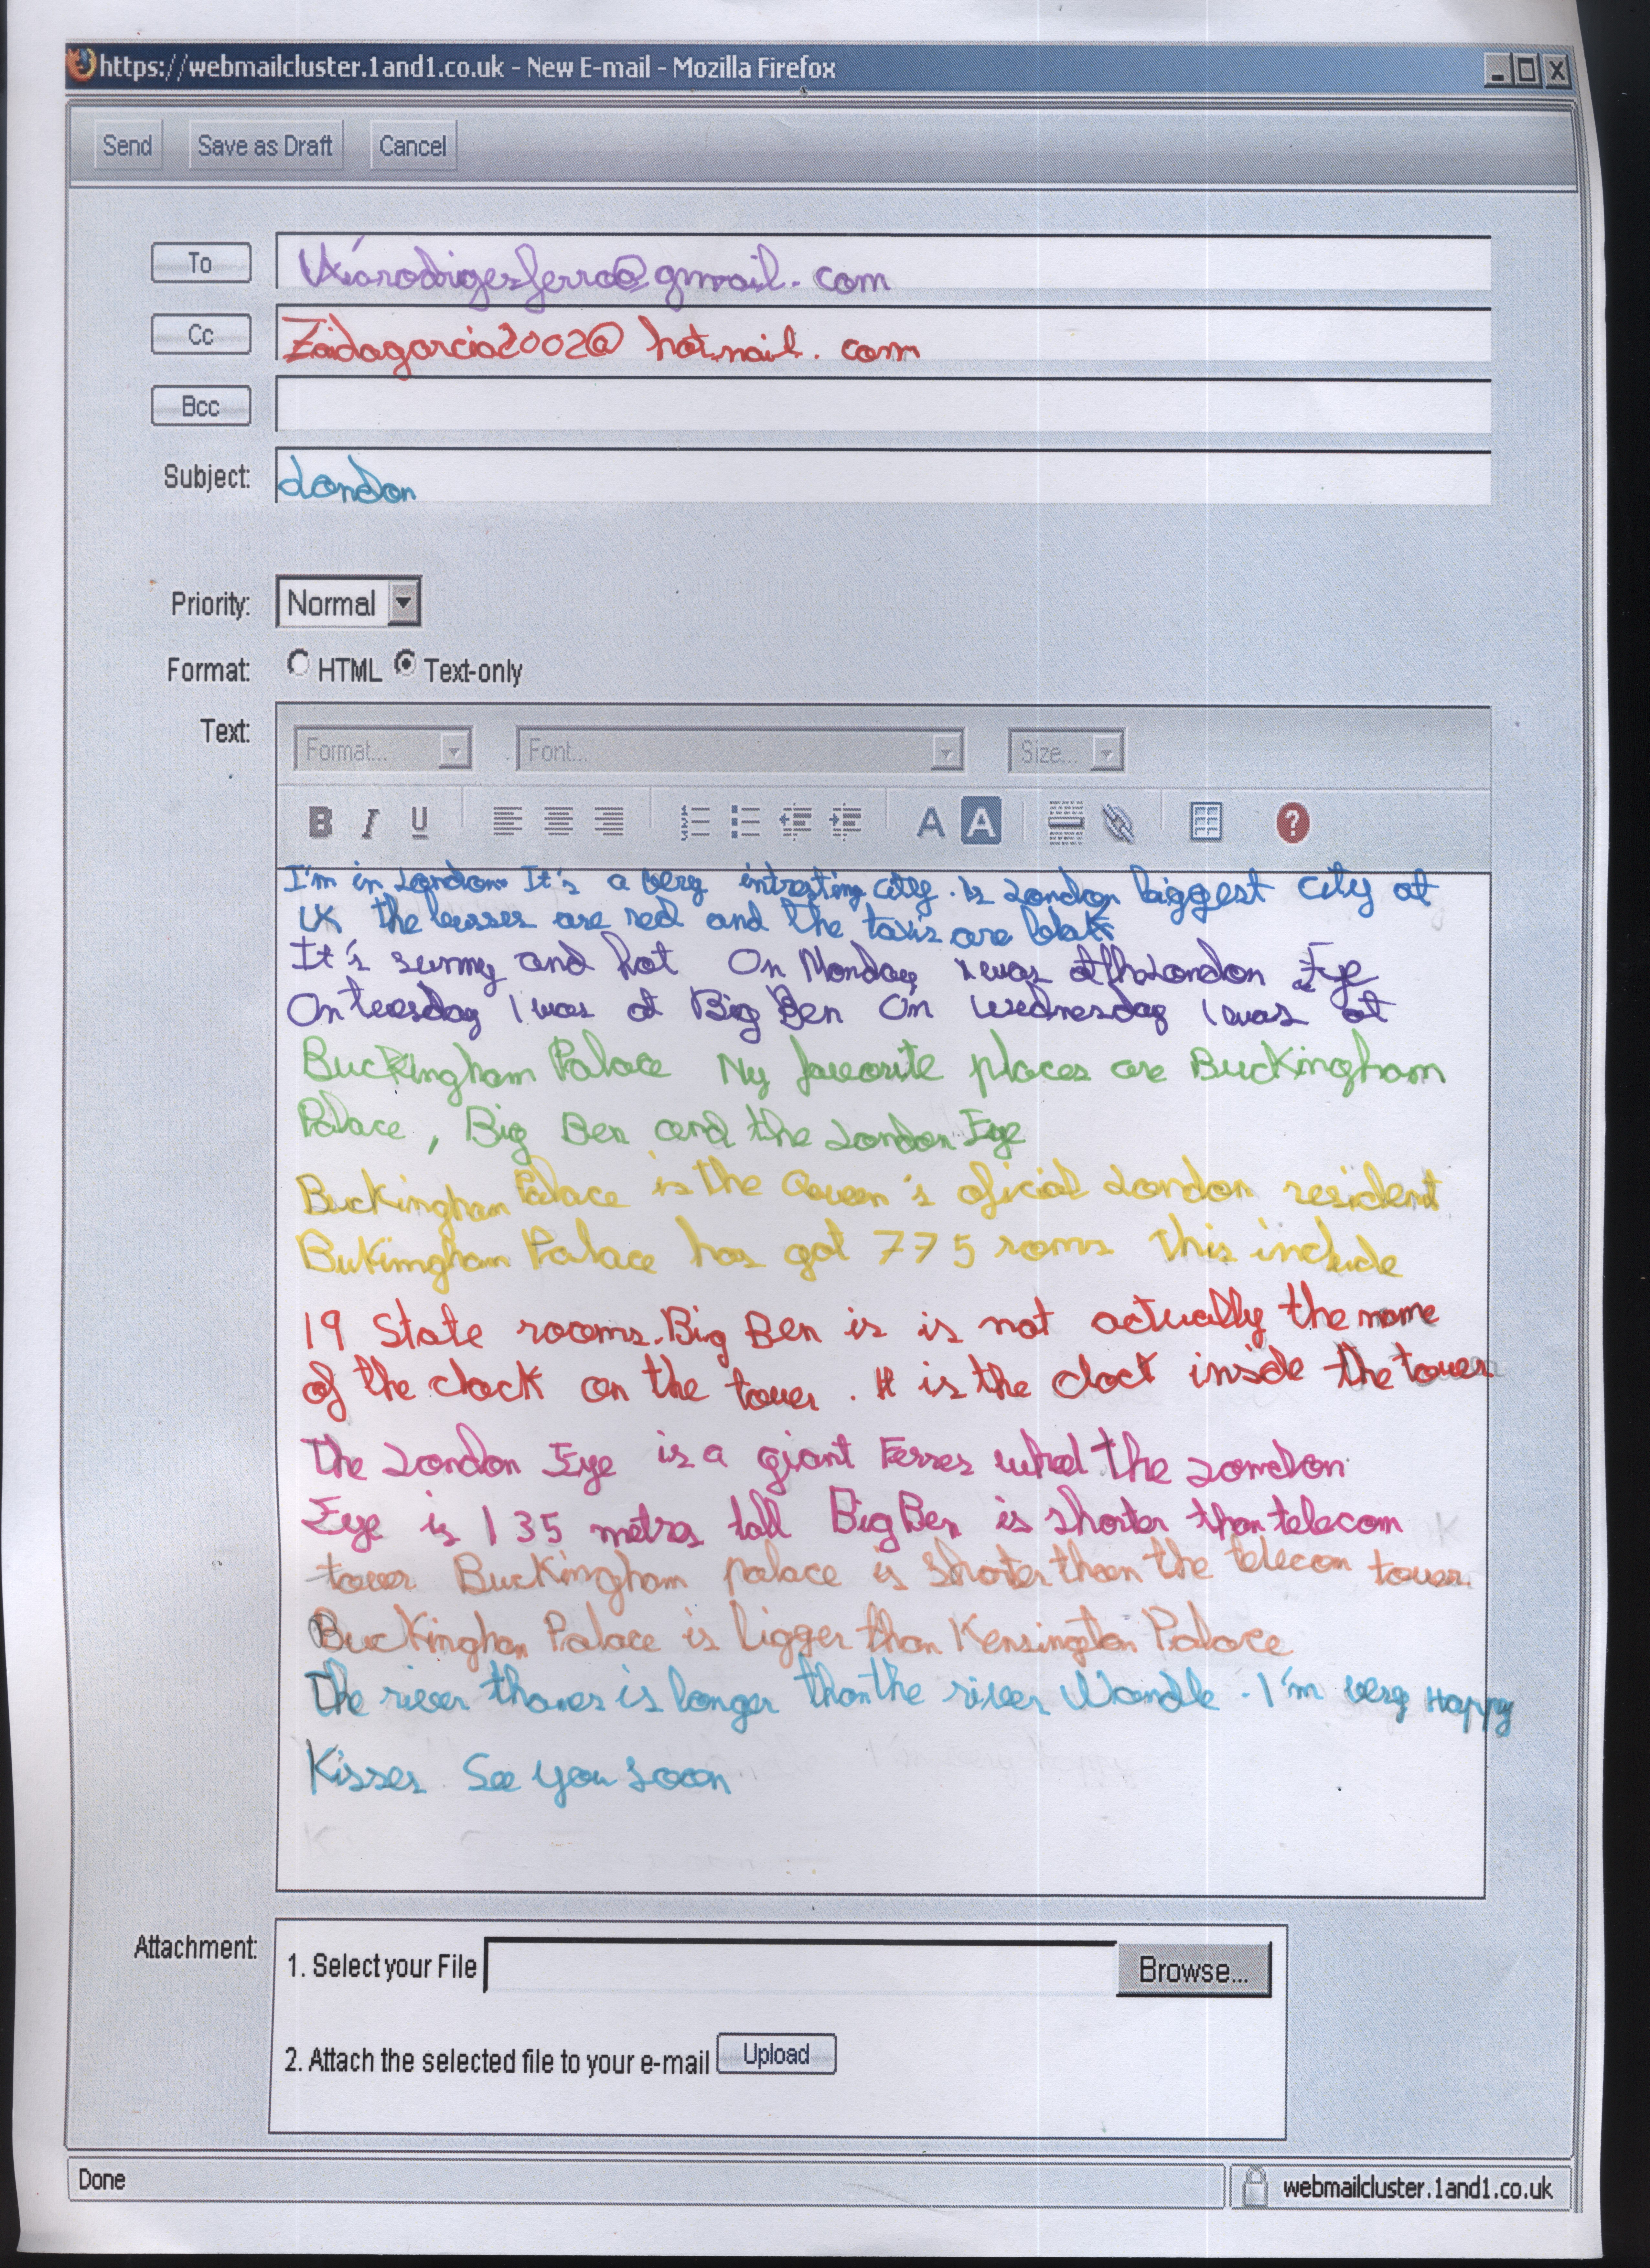 https://webmailcluster.1and1.co.uk - New E-mail - Mozilla Firefox
Send Save as Draft Cancel
To Uxíarodrigesferro@gmail.com
Cc Zaidagarcia2002@hotmail.com
Bcc
Subject: London
Priority: Normal
Format: HTML Text-only
Text: Format... Font... Size...
B I U A A ?
I'm in London. It's a very intresting city. Is London biggest city at
UK the busses are red and the taxis are blak
It's sunny and hot On Monday I was at the London Eye
On tuesday I was at Big Ben On Wednesday I was at
Buckingham Palace My favorite places are Buckingham
Palace, Big Ben and the London Eye
Buckingham Palace is the Queen's oficial London resident
Bukingham Palace has got 775 roms This include
19 State rooms. Big Ben is is not actually the name
of the clock on the tower. It is the clock inside the tower
The London Eye is a giant Ferres wheel The London
Eye is 135 metres tall Big Ben is shorter than telecom
tower Buckingham palace is shorter than the telecon tower.
Buckingham Palace is bigger than Kensington Palace
The river thames is longer than the river Wandle. I'm very Happy
Kisses See you soon
Attachment: 1. Select your File Browse...
2. Attach the selected file to your e-mail Upload
Done webmailcluster.1and1.co.uk